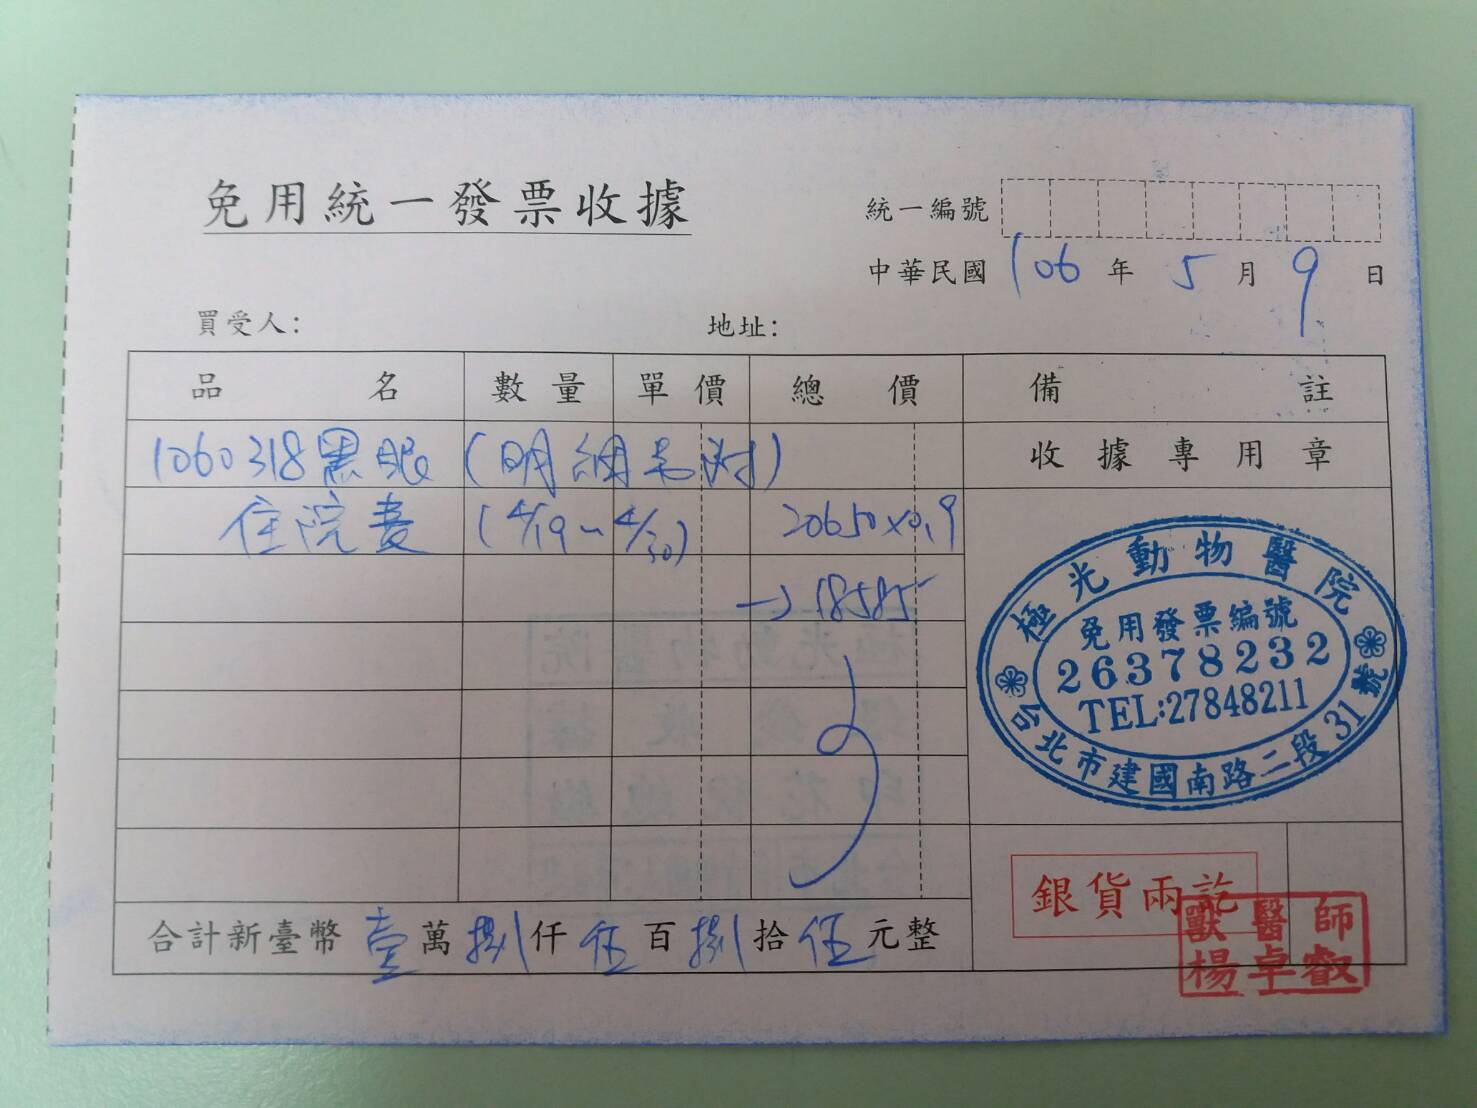 免用統一發票收據
統一編號
中華民國 106 年 5 月 9 日
買受人： 地址：
品名 數量 單價 總價 備註
1060318黑眼 (明細如附) 收據專用章
住院費 (4/19~4/30) 20650×0.9
→18585
極光動物醫院
免用發票編號
26378232
TEL:27848211
台北市建國南路二段31號
合計新臺幣 壹 萬 捌 仟 伍 百 捌 拾 伍 元整
銀貨兩訖
獸醫師
楊卓叡